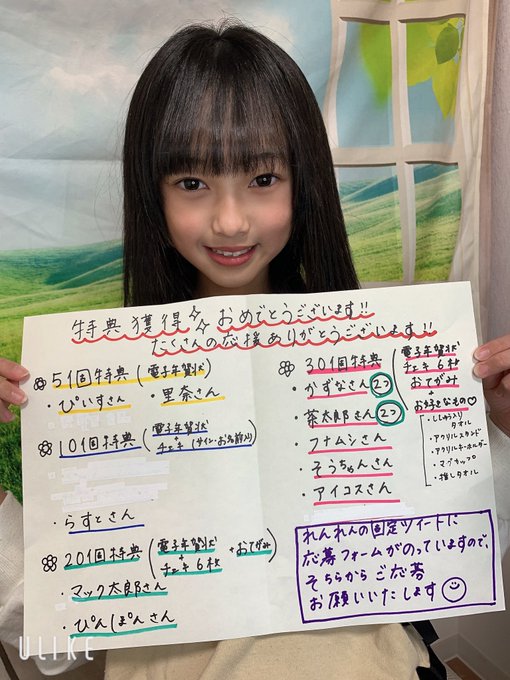 特典獲得☆☆おめでとうございます!!
たくさんの応援ありがとうございます!!
5個特典（電子年賀状）
・ぴいすさん ・里奈さん
10個特典（電子年賀状
+
チェキ（サイン・お名前入り）
・らすとさん
20個特典（電子年賀状
+
チェキ6枚 +おてがみ）
・マック太郎さん
・ぴんぽんさん
30個特典
・かずなさん 2つ
・茶太郎さん 2つ
・フナムシさん
・そうちゃんさん
・アイコスさん
（電子年賀状
チェキ6枚
おてがみ
+
お好きなもの♡
・ししゅう入りタオル
・アクリルスタンド
・アクリルキーホルダー
・マグカップ
・推しタオル
れんれんの固定ツイートに
応募フォームがのっていますので、
そちらからご応募
お願いいたします
ULIKE